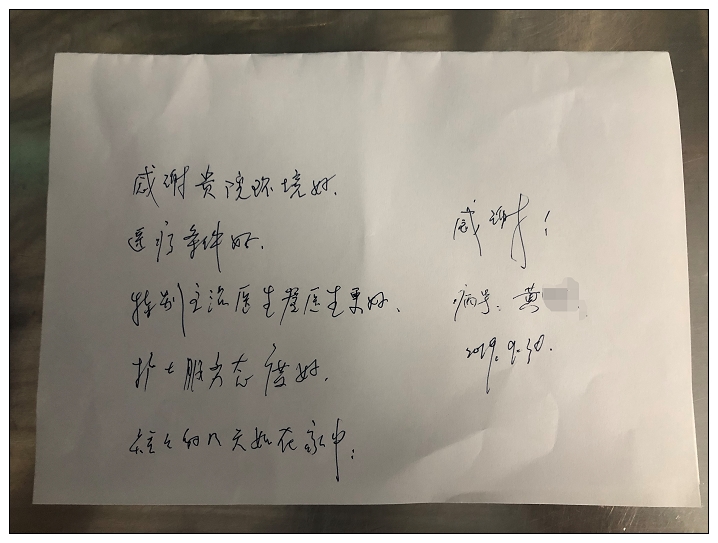 感谢贵院环境好.
医疗条件好.
特别主治医生 医生更好、
护士服务态度好.
短短的几天如在家中;
感谢!
病号: 黄
2019. 9. 30.